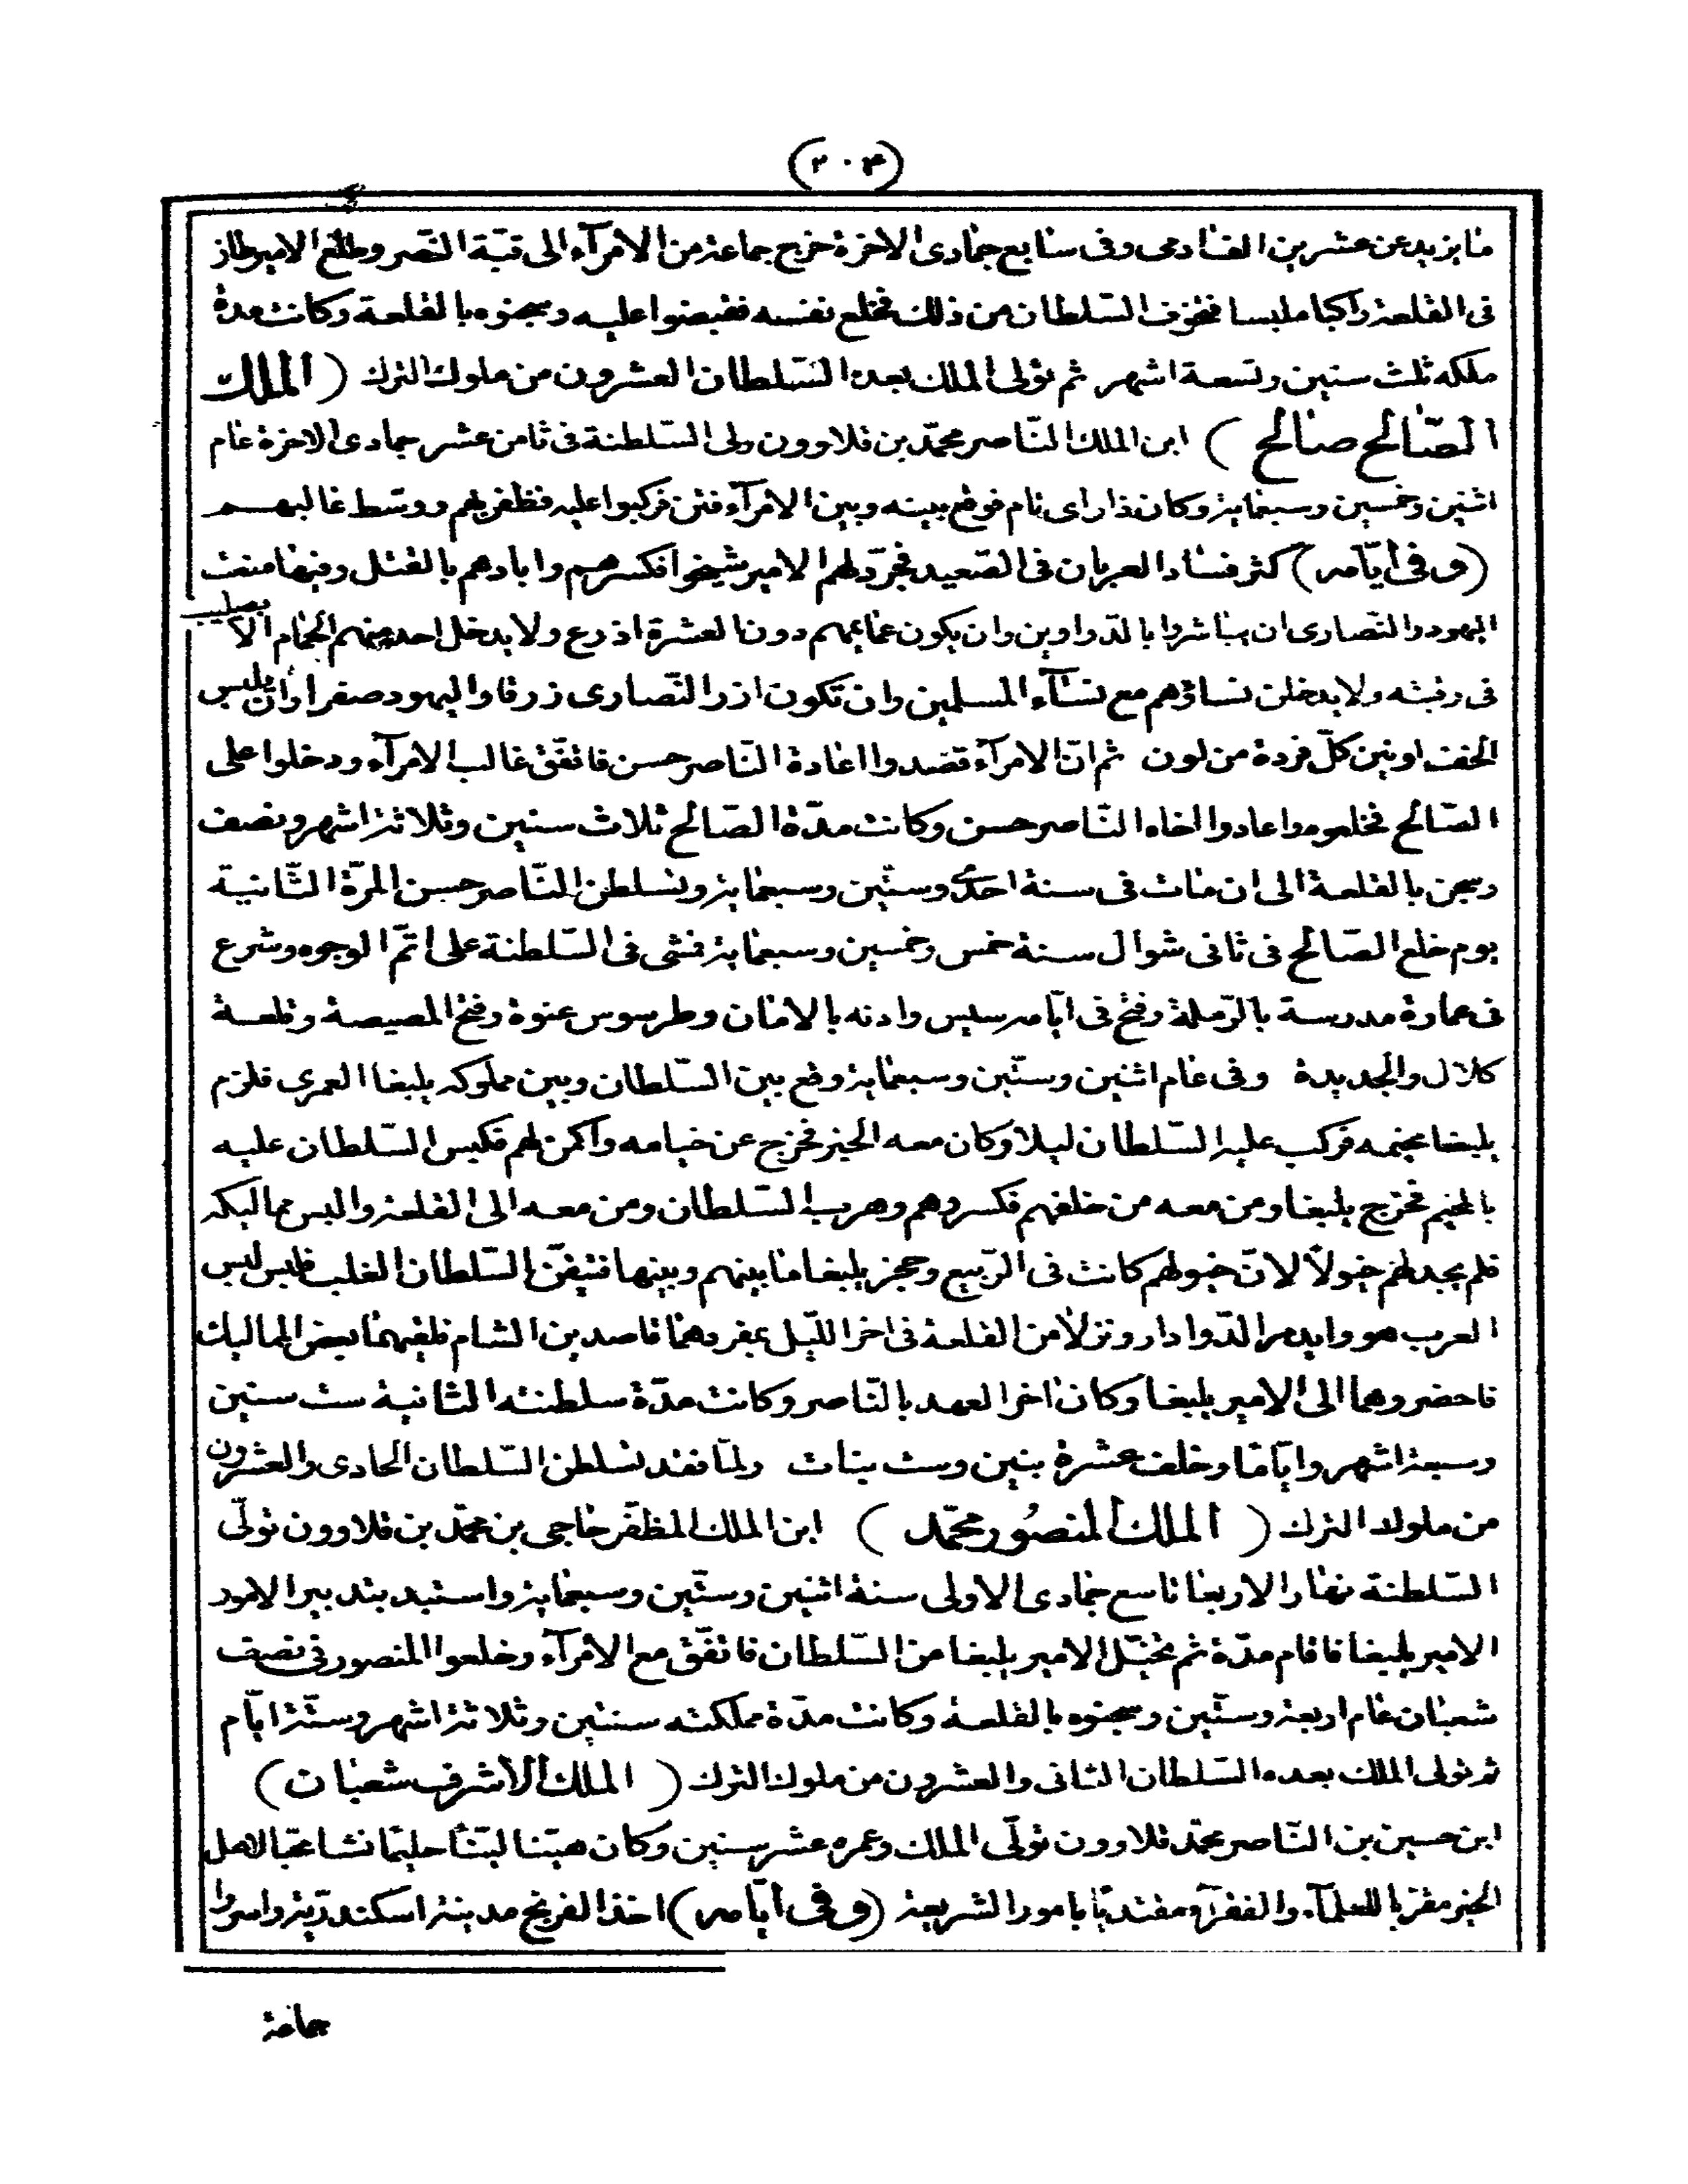 (٢٠٤)
ما يزيد عن عشرين الف ادمى وفى سابع جمادى الاخرة خرج جماعة من الامرآء الى قبّة النّصر وطلع الامير طاز
فى القلعة راكبا ملبسا فتخوف السّلطان من ذلك فخلع نفسه فقبضوا عليه وسجنوه بالقلعة وكانت مدة
ملكه ثلث سنين وتسعة اشهر ثم تولى الملك بعده السّلطان العشرون من ملوك الترك (الملك
الصّالح صالح) ابن الملك النّاصر محمّد بن قلاوون ولى السّلطنة فى ثامن عشر جمادى الاخرة عام
اثنين وخمسين وسبعماية وكان ذا راى تام فوقع بينه وبين الامرآء فتن فركبوا عليه فظفر بهم ووسّط غالبهم
(وفى ايّامه) كثر فساد العربان فى الصّعيد فجرّد لهم الامير شيخو افكسرهم وابادهم بالقتل وفيها منعت
اليهود والنّصارى ان يباشروا بالدّواوين وان يكون عمايمهم دون العشرة اذرع ولا يدخل احد منهم الحمّام الا بصليب
فى رقبته ولا يدخلن نساؤهم مع نسآء المسلمين وان تكون ازر النّصارى زرقا واليهود صفرا وان يلبس
الخف اوبين كلّ فردة من لون ثم انّ الامرآء قصدوا اعادة النّاصر حسن فاتّفق غالب الامرآء ودخلوا على
الصّالح فخلعوه واعادوا اخاه النّاصر حسن وكانت مدّة الصّالح ثلاث سنين وثلاثة اشهر ونصف
وسجن بالقلعة الى ان مات فى سنة احدى وستّين وسبعماية وتسلطن النّاصر حسن المرّة الثّانية
يوم خلع الصّالح فى ثانى شوال سنة خمس وخمسين وسبعماية فمشى فى السّلطنة على اتمّ الوجوه وشرع
فى عمارة مدرسة بالرّملة وفتح فى ايّامه سيس وادنه بالامان وطرسوس عنوة وفتح المصيصة وقلعة
كلال والجديدة وفى عام اثنين وستّين وسبعماية وقع بين السّلطان وبين مملوكه يلبغا العمرى فلزم
يلبغا مخيمه فركب عليه السّلطان ليلا وكان معه الخبر فخرج عن خيامه واكمن لهم فكبس السّلطان عليه
بالمخيم فخرج يلبغا ومن معه من خلفهم فكسروهم وهرب السّلطان ومن معه الى القلعة والبس مماليكه
فلم يجد لهم خيولاً لانّ خيولهم كانت فى الرّبيع وحجز يلبغا ما بينهم وبينها فتيقّن السّلطان الغلب فلبس لبس
العرب هو وايدمر الدّوادار ونزلا من القلعة فى اخر اللّيل بمفردهما قاصدين الشام فلقيهما بعض المماليك
فاحضروهما الى الامير يلبغا وكان اخر العهد بالنّاصر وكانت مدّة سلطنته الثانية ست سنين
وسبعة اشهر وايّاما وخلف عشرة بنين وست بنات ولمّا فقد تسلطن السّلطان الحادى والعشرون
من ملوك الترك (الملك المنصور محمّد) ابن الملك المظفّر حاجى بن محمّد بن قلاوون تولّى
السّلطنة نهار الاربعا تاسع جمادى الاولى سنة اثنين وستّين وسبعماية واستبد بتدبير الامور
الامير يلبغا فاقام مدّة ثم تخيّل الامير يلبغا من السّلطان فاتّفق مع الامرآء وخلعوا المنصور فى نصف
شعبان عام اربعة وستّين وسجنوه بالقلعة وكانت مدّة مملكته سنتين وثلاثة اشهر وستّة ايّام
ثم تولى الملك بعده السّلطان الثانى والعشرون من ملوك الترك (الملك الاشرف شعبان)
ابن حسين بن النّاصر محمّد قلاوون تولّى الملك وعمره عشر سنين وكان هيّنا ليّنا حليما نشا محبّا لاهل
الخير مقرّبا للعلمآء والفقرآء مقتديّا بامور الشريعة (وفى ايّامه) اخذ الفرنج مدينة اسكندريّة واسروا
جماعة